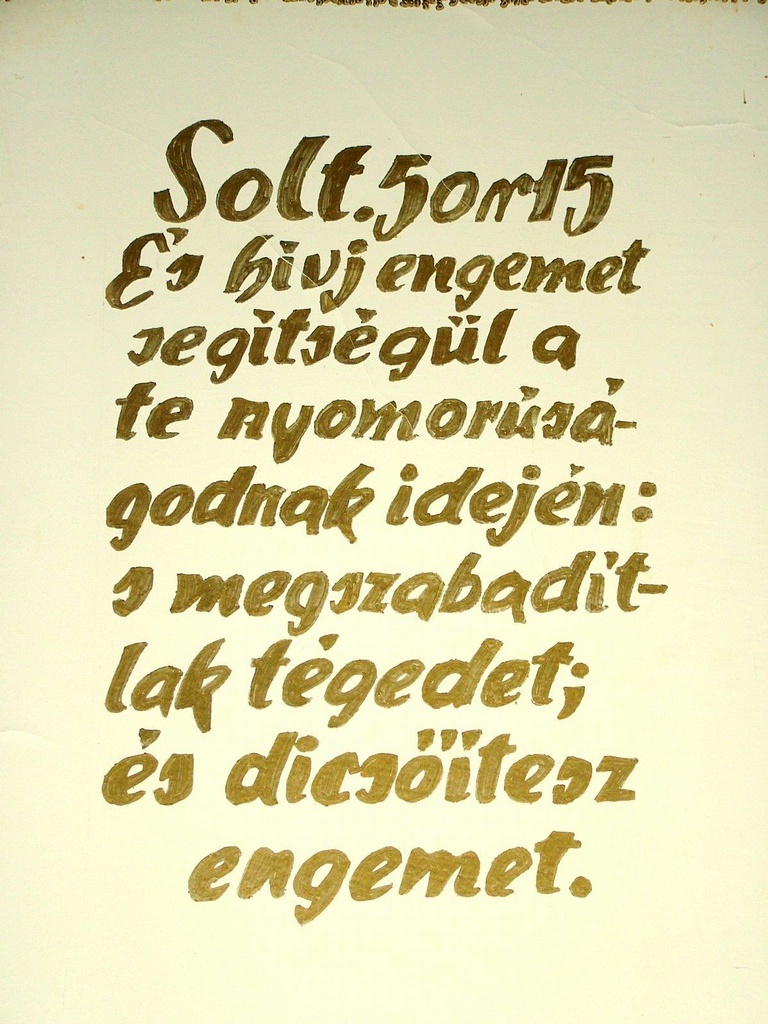 Solt. 50 r 15
És hivj engemet
segitségül a
te nyomorúsá-
godnak idején:
s megszabadít-
lak tégedet;
és dicsőítesz
engemet.